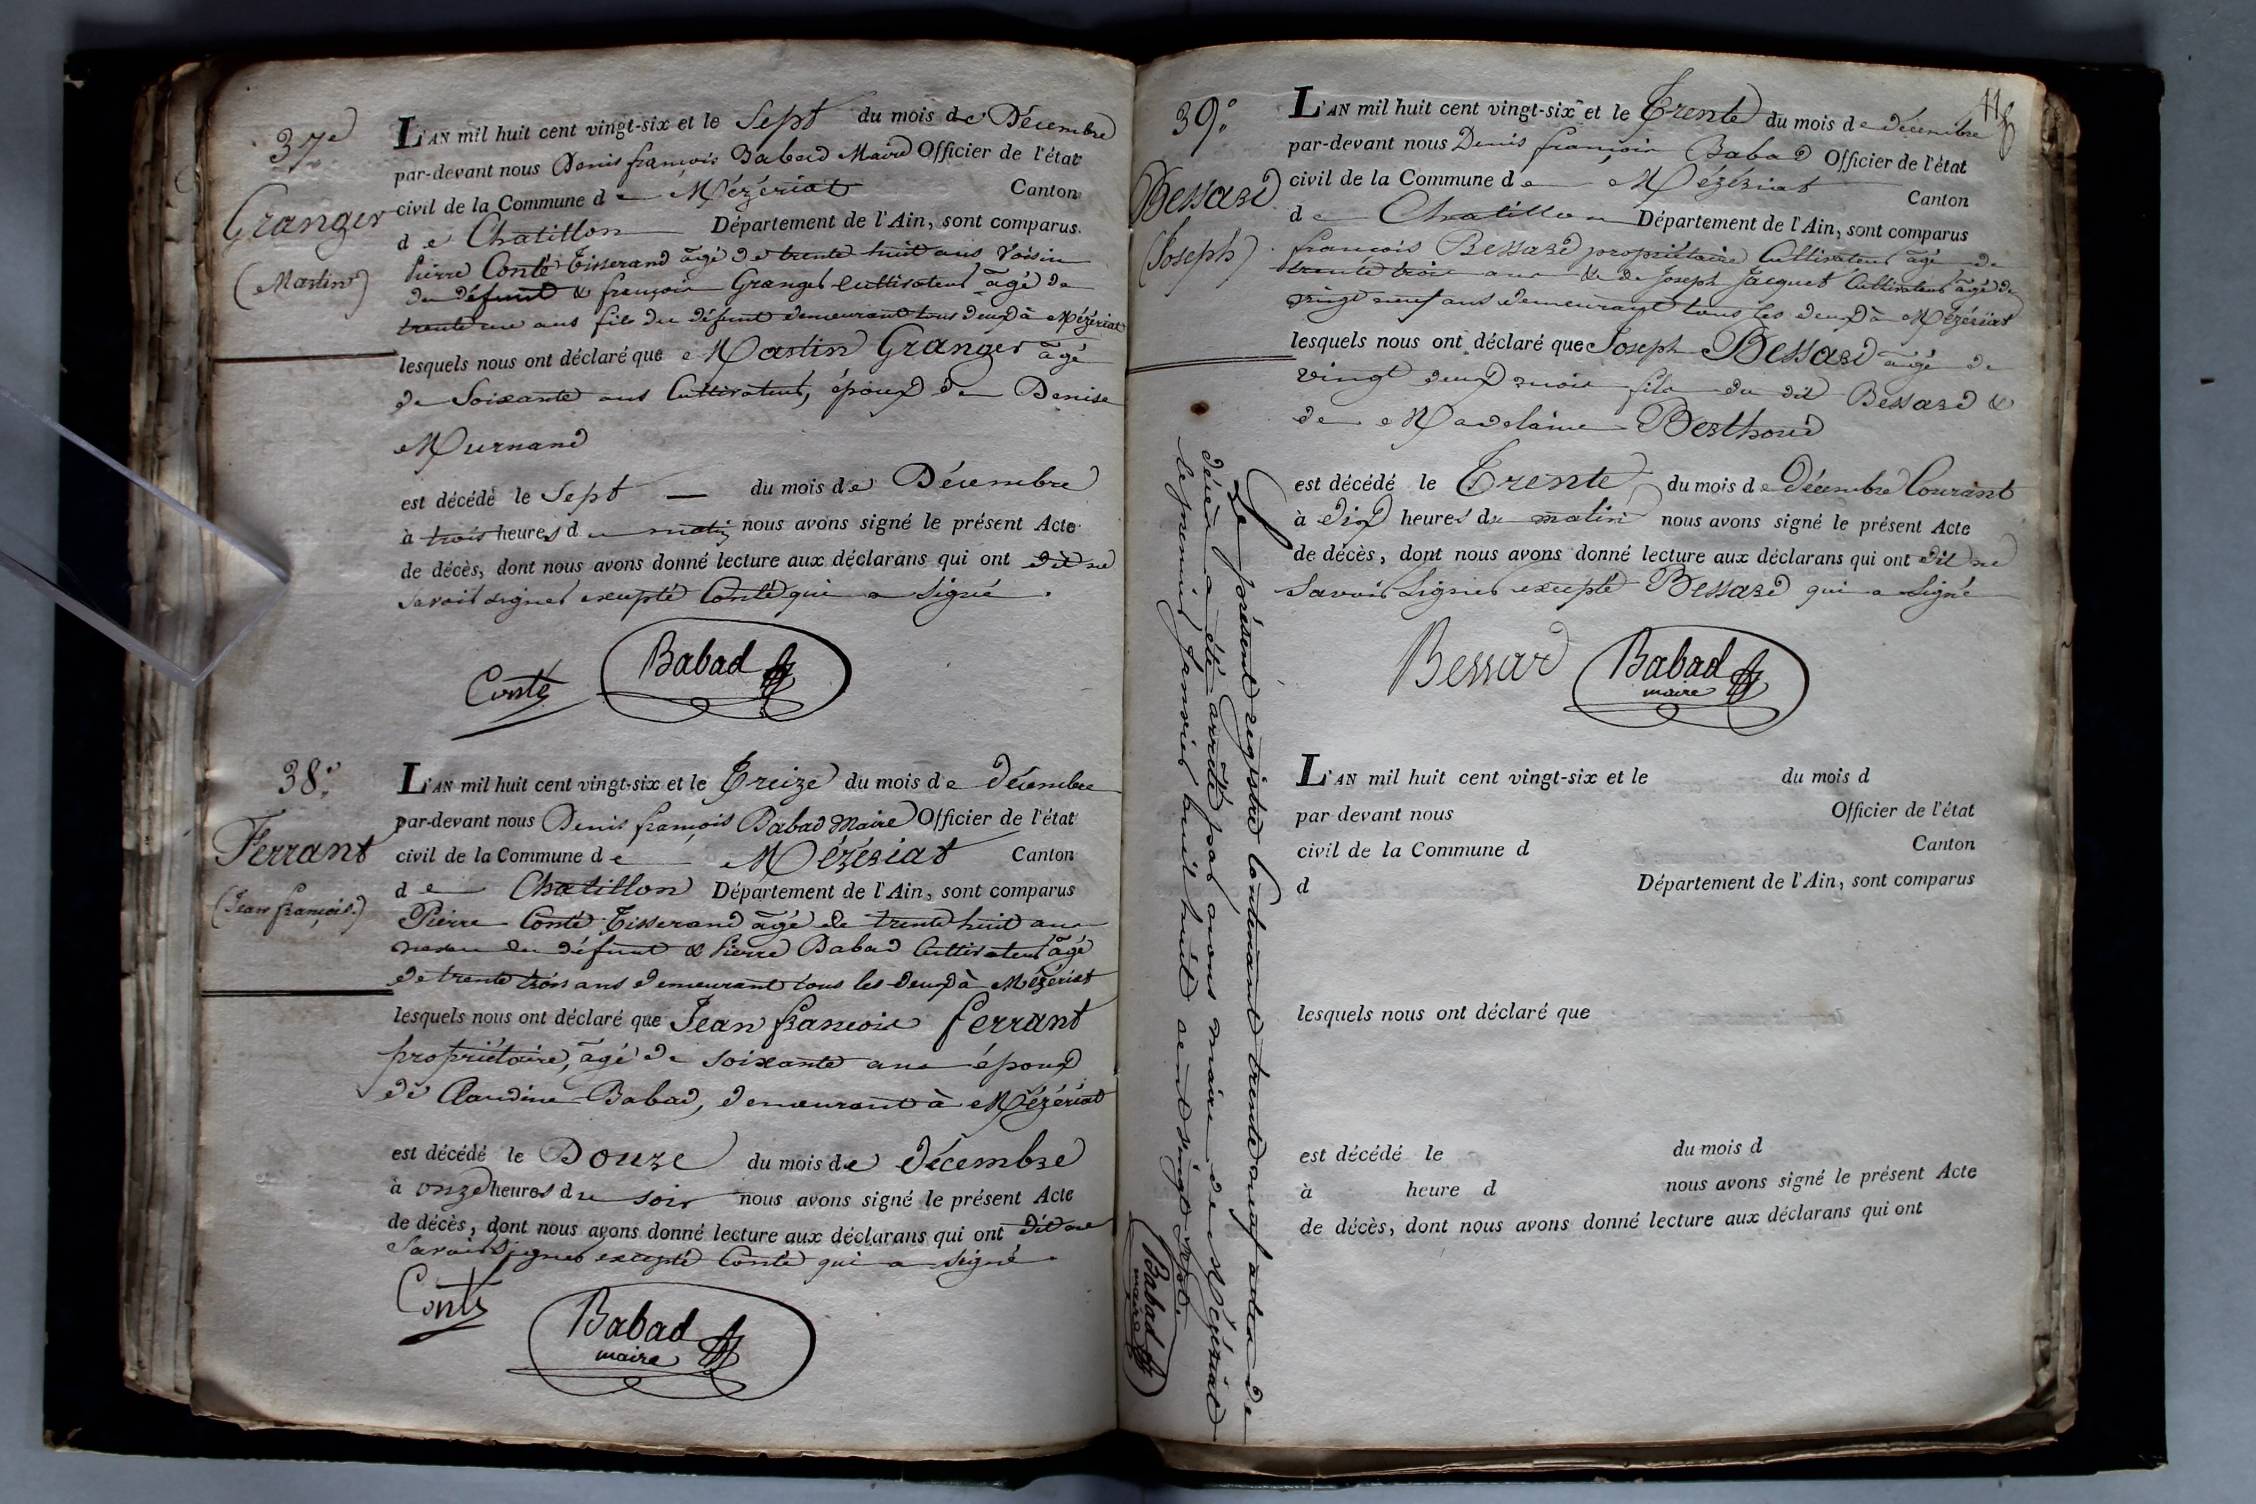 37e
Granger
(Martin)
L'AN mil huit cent vingt-six et le Sept du mois de Décembre
par-devant nous Denis françois Babad Maire Officier de l'état
civil de la Commune de Mézériat Canton
de Chatillon Département de l'Ain, sont comparus.
Pierre Conté Tisserand âgé de trente huit ans Voisin
du défunt & françois Granger Cultivateur âgé de
trente un ans fils du défunt demeurant tous deux à Mézériat
lesquels nous ont déclaré que Martin Granger âgé
de Soixante ans Cultivateur, époux de Denise
Murnand
est décédé le Sept du mois de Décembre
à trois heures du matin nous avons signé le présent Acte
de décès, dont nous avons donné lecture aux déclarans qui ont dit ne
Savoir signer excepté Conté qui a Signé.
Conté Babad
38e
Ferrant
(Jean françois.)
L'AN mil huit cent vingt-six et le Treize du mois de décembre
par-devant nous Denis françois Babad Maire Officier de l'état
civil de la Commune de Mézériat Canton
de Chatillon Département de l'Ain, sont comparus
Pierre Conté Tisserand âgé de trente huit ans
neveu du défunt & Pierre Babad Cultivateur âgé
de trente trois ans demeurant tous les deux à Mézériat
lesquels nous ont déclaré que Jean françois ferrant
propriétaire, âgé de soixante ans époux
de Claudine Babad, demeurant à Mézériat
est décédé le Douze du mois de décembre
à onze heures du soir nous avons signé le présent Acte
de décès, dont nous avons donné lecture aux déclarans qui ont dit ne
Savoir Signer excepté Conté qui a signé.
Conté Babad
maire
39e
Bessard
(Joseph)
L'AN mil huit cent vingt-six et le Trente du mois de décembre
par-devant nous Denis françois Babad Officier de l'état
civil de la Commune de Mézériat Canton
de Chatillon Département de l'Ain, sont comparus
françois Bessard propriétaire Cultivateur âgé de
trente trois ans & de Joseph Jacquet Cultivateur âgé de
vingt neuf ans demeurant tous les deux à Mézériat
lesquels nous ont déclaré que Joseph Bessard âgé de
vingt deux mois fils du dit Bessard &
de Madelaine Berthoud
est décédé le Trente du mois de décembre Courant
à dix heures du matin nous avons signé le présent Acte
de décès, dont nous avons donné lecture aux déclarans qui ont dit ne
Savoir Signer excepté Bessard qui a Signé
Bessard Babad
maire
Le présent registre Contenant trente neuf actes de
décès a été arrêté par nous maire de Mézériat
le premier Janvier huit huit cent vingt sept.
Babad
maire
L'AN mil huit cent vingt-six et le du mois d
par devant nous Officier de l'état
civil de la Commune d Canton
d Département de l'Ain, sont comparus
lesquels nous ont déclaré que
est décédé le du mois d
à heure d nous avons signé le présent Acte
de décès, dont nous avons donné lecture aux déclarans qui ont